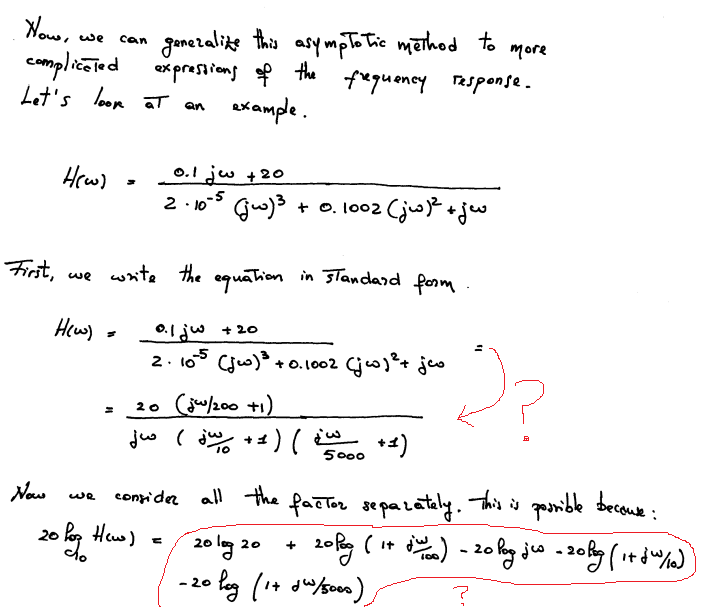 Now, we can generalize this asymptotic method to more
complicated expressions of the frequency response.
Let's look at an example.
H(ω) = (0.1 jω + 20) / (2 · 10⁻⁵ (jω)³ + 0.1002 (jω)² + jω)
First, we write the equation in standard form.
H(ω) = (0.1 jω + 20) / (2 · 10⁻⁵ (jω)³ + 0.1002 (jω)² + jω) =
= 20 (jω/200 + 1) / (jω (jω/10 + 1) (jω/5000 + 1))
?
Now we consider all the factor separately. This is possible because:
20 log₁₀ H(ω) = 20 log 20 + 20 log (1 + jω/100) - 20 log jω - 20 log (1 + jω/10)
- 20 log (1 + jω/5000)
?